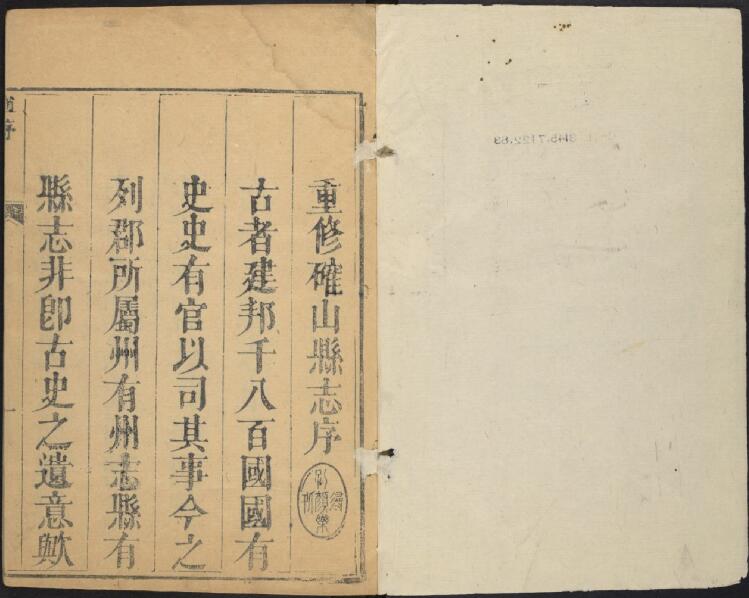 重修確山縣志序
古者建邦千八百國國有
史史有官以司其事今之
列郡所屬州有州志縣有
縣志非卽古史之遺意歟
序